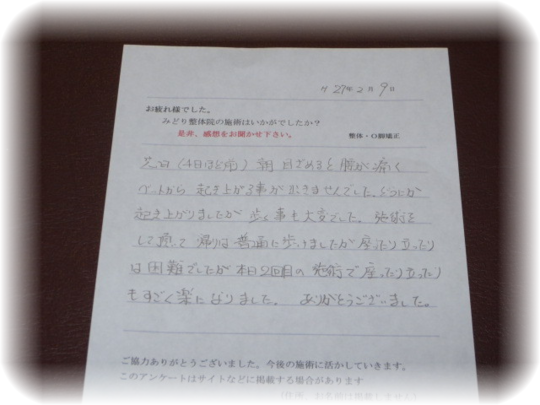 H 27年2月9日
お疲れ様でした。
みどり整体院の施術はいかがでしたか？
是非、感想をお聞かせ下さい。 整体・O脚矯正
先日(4日ほど前) 朝 目ざめると腰が痛く
ベットから 起き上がる事が出きませんでした。どうにか
起き上がりましたが 歩く事も大変でした。施術を
して頂いて 帰りは普通に歩けましたが 座ったり立ったり
は困難でしたが 本日2回目の 施術で 座ったり立ったり
もすごく楽になりました。 ありがとうございました。
ご協力ありがとうございました。今後の施術に活かしていきます。
このアンケートはサイトなどに掲載する場合があります
(住所、お名前は掲載しません)